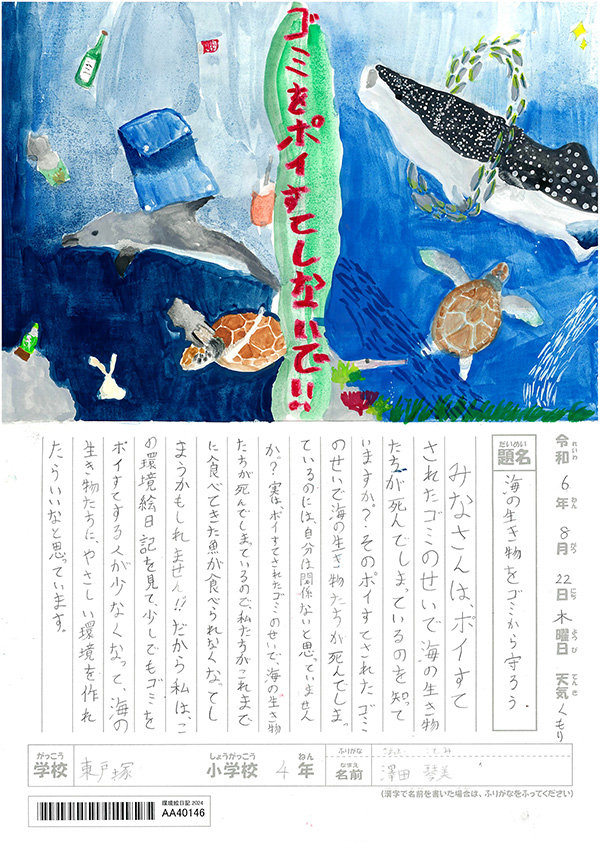 ゴミをポイすてしないで!!
令和 6年 8月 22日 木曜日 天気 くもり
れいわ ねん がつ にち ようび てんき
だいめい
題名
海の生き物をゴミから守ろう。
みなさんは、ポイすて
されたゴミのせいで海の生き物
たちが死んでしまっているのを知って
いますか?そのポイすてされたゴミ
のせいで海の生き物たちが死んでしまっ
ているのには、自分は関係ないと思っていません
か?実はポイすてされたゴミのせいで、海の生き物
たちが死んでしまっているので、私たちがこれまで
に食べてきた魚が食べられなくなってし
まうかもしれません!!だから私は、こ
の環境絵日記を見て、少しでもゴミを
ポイすてする人が少なくなって、海の
生き物たちに、やさしい環境を作れ
たらいいなと思っています。
がっこう しょうがっこう ねん
学校 東戸塚 小学校 4年
ふりがな
なまえ
名前 澤田 琴美
(漢字で名前を書いた場合は、ふりがなをふってください)
環境絵日記 2024
AA40146